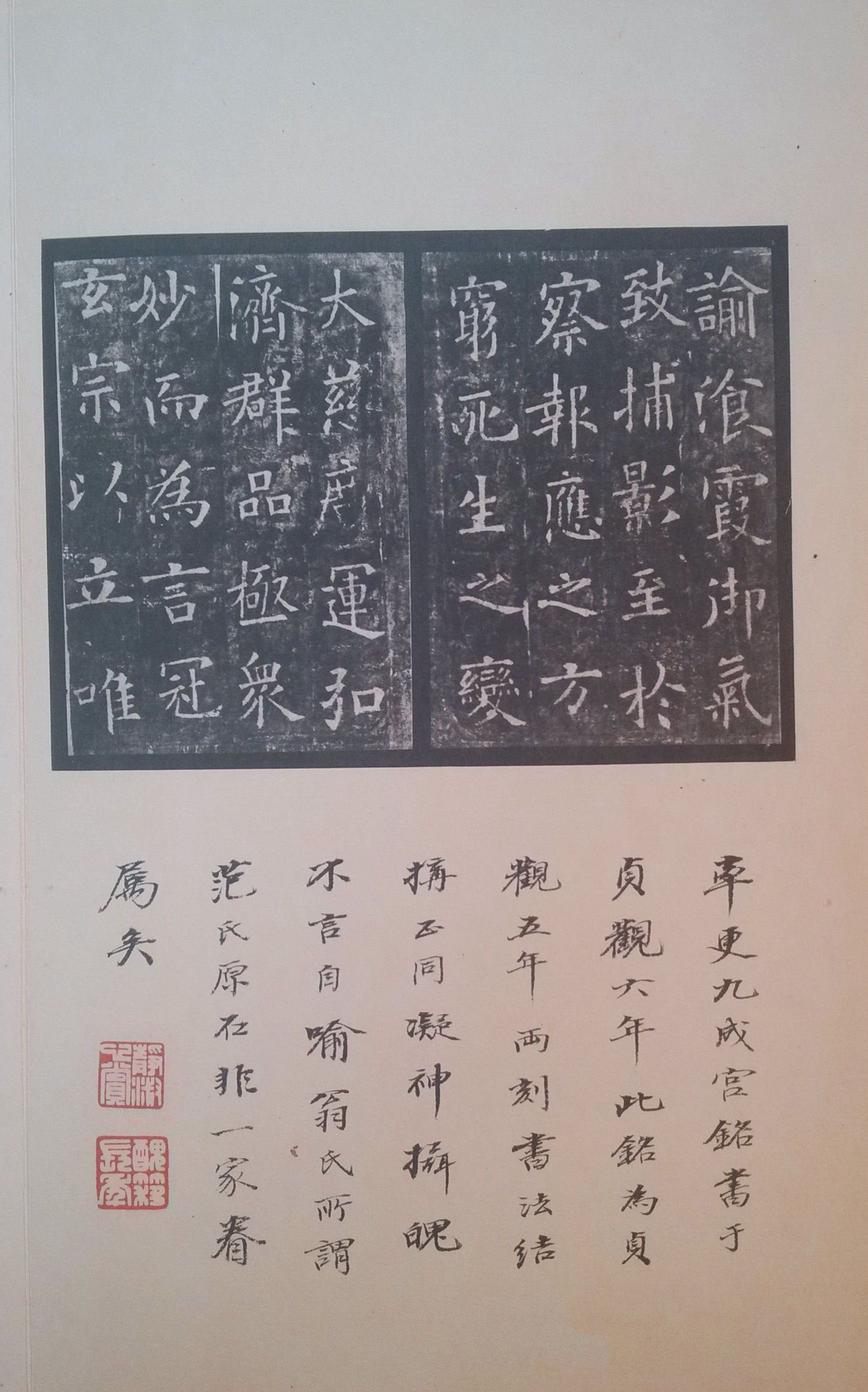 諭飡霞御氣
致捕影至於
察報應之方
窮死生之變
大慈廣運弘
濟群品極衆
妙而為言冠
玄宗以立唯
率更九成宮銘書于
貞觀六年此銘為貞
觀五年兩刻書法結
搆正同凝神攝魄
不言自喻翁氏所謂
范氏原石非一家眷
屬矣